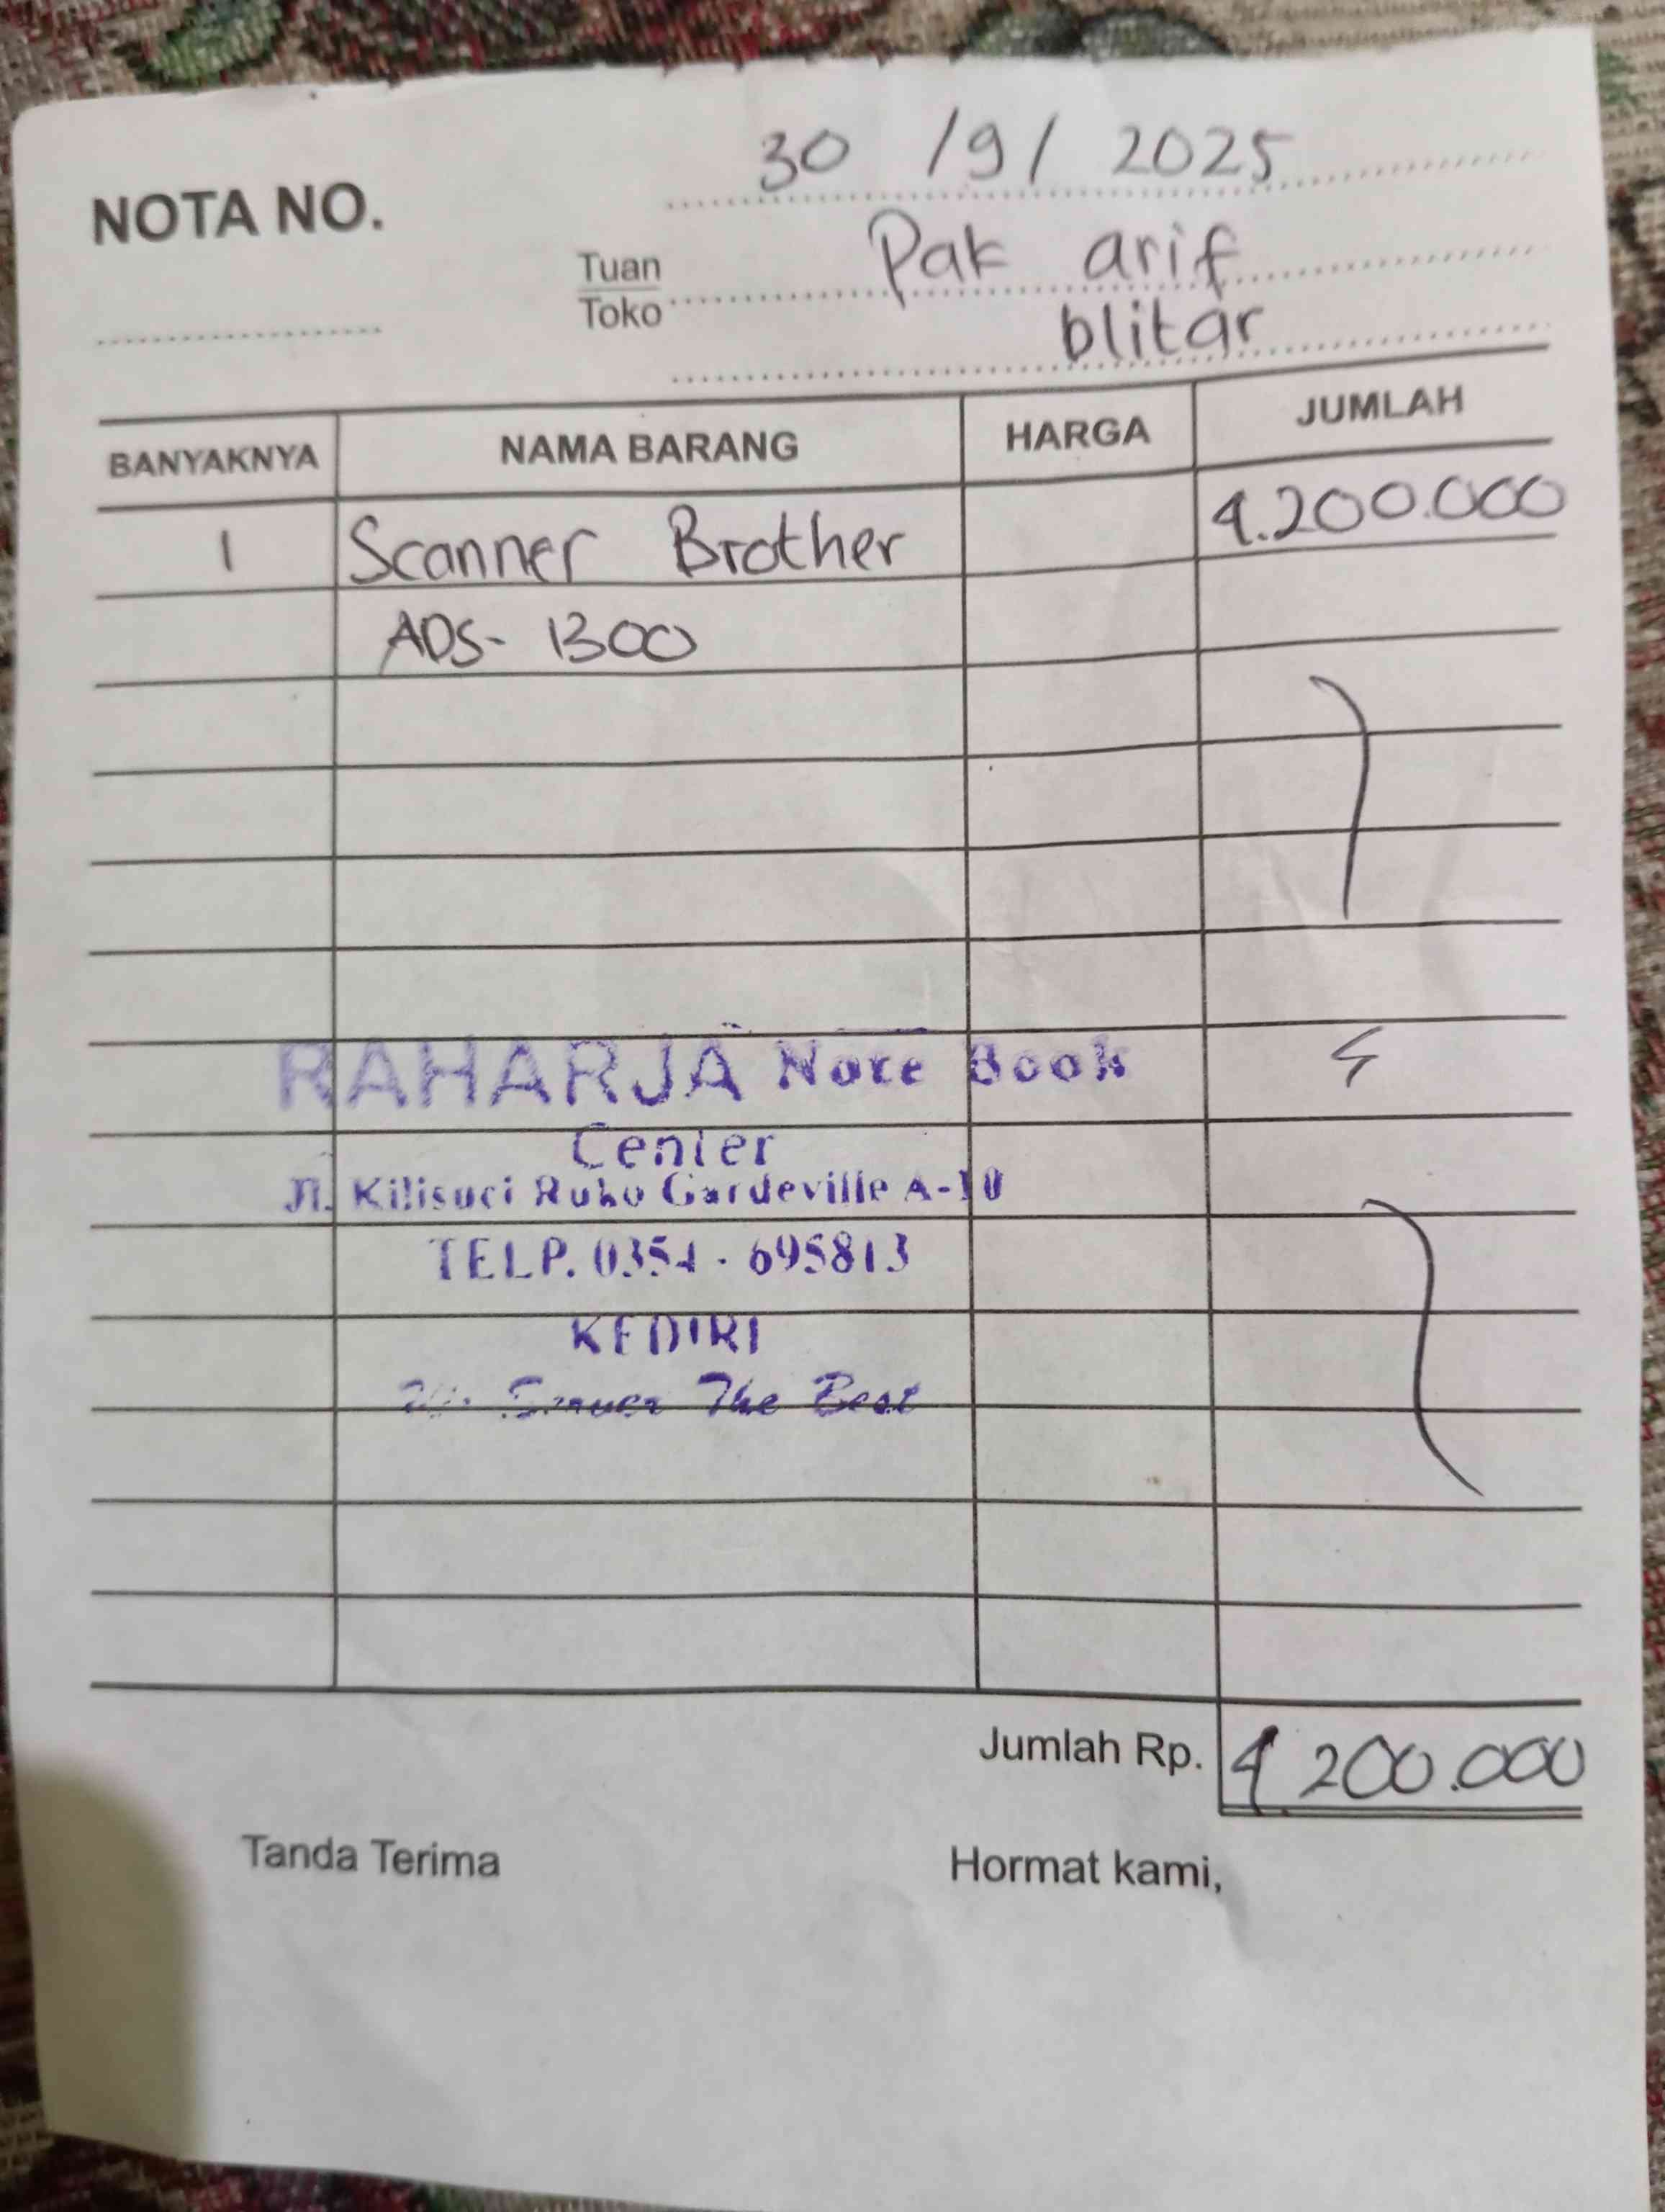 30 / 9 / 2025
NOTA NO.
Tuan Pak arif
Toko
blitar
BANYAKNYA NAMA BARANG HARGA JUMLAH
1 Scanner Brother 4.200.000
ADS- 1300
RAHARJA Note Book
Center
Jl. Kilisuci Ruko Gardeville A-10
TELP. 0354 - 695813
KEDIRI
The Best
Jumlah Rp. 4 200.000
Tanda Terima Hormat kami,